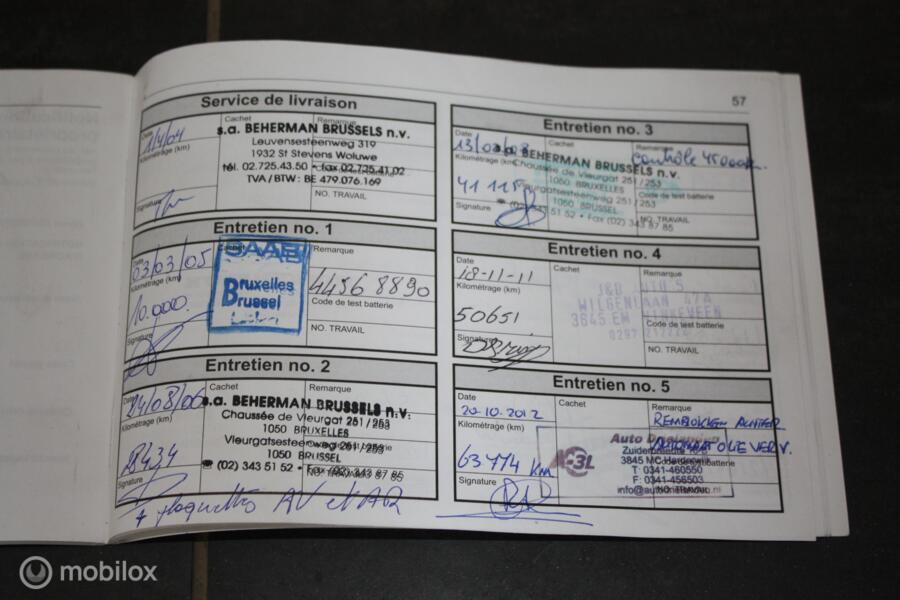 57
Service de livraison
Date
1/4/04
Kilométrage (km)
Signature
Cachet
Remarque
s.a. BEHERMAN BRUSSELS n.v.
Leuvensesteenweg 319
1932 St Stevens Woluwe
tél. 02.725.43.50 • fax 02.725.41.02
TVA / BTW : BE 479.076.169
NO. TRAVAIL
Entretien no. 1
Date
03/03/05
Kilométrage (km)
10.000
Signature
Cachet
SAAB
Bruxelles
Brussel
Remarque
4456 8890
Code de test batterie
NO. TRAVAIL
Entretien no. 2
Date
24/08/06
Kilométrage (km)
28434
Signature
Cachet
Remarque
s.a. BEHERMAN BRUSSELS n.v.
Chaussée de Vleurgat 251/253
1050 BRUXELLES
Vleurgatsesteenweg 251/253
1050 BRUSSEL
(02) 343 51 52 • Fax (02) 343 87 85
NO. TRAVAIL
+ plaquettes AV et AR
Entretien no. 3
Date
13/03/08
Kilométrage (km)
41 115
Signature
Cachet
Remarque
contrôle 45000 km
s.a. BEHERMAN BRUSSELS n.v.
Chaussée de Vleurgat 251/253
1050 BRUXELLES
Vleurgatsesteenweg 251/253
1050 BRUSSEL
(02) 343 51 52 • Fax (02) 343 87 85
Code de test batterie
NO. TRAVAIL
Entretien no. 4
Date
18-11-11
Kilométrage (km)
50651
Signature
Cachet
Remarque
WILGENLAAN 47A
3645 EM VINKEVEEN
Code de test batterie
NO. TRAVAIL
Entretien no. 5
Date
20-10-2012
Kilométrage (km)
63114 km
Signature
Cachet
Remarque
REMBLOKKEN ACHTER
AUTOMAAT OLIE VERV.
3845 MC Harderwijk
T: 0341-460550
F: 0341-456503
NO. TRAVAIL
mobilox